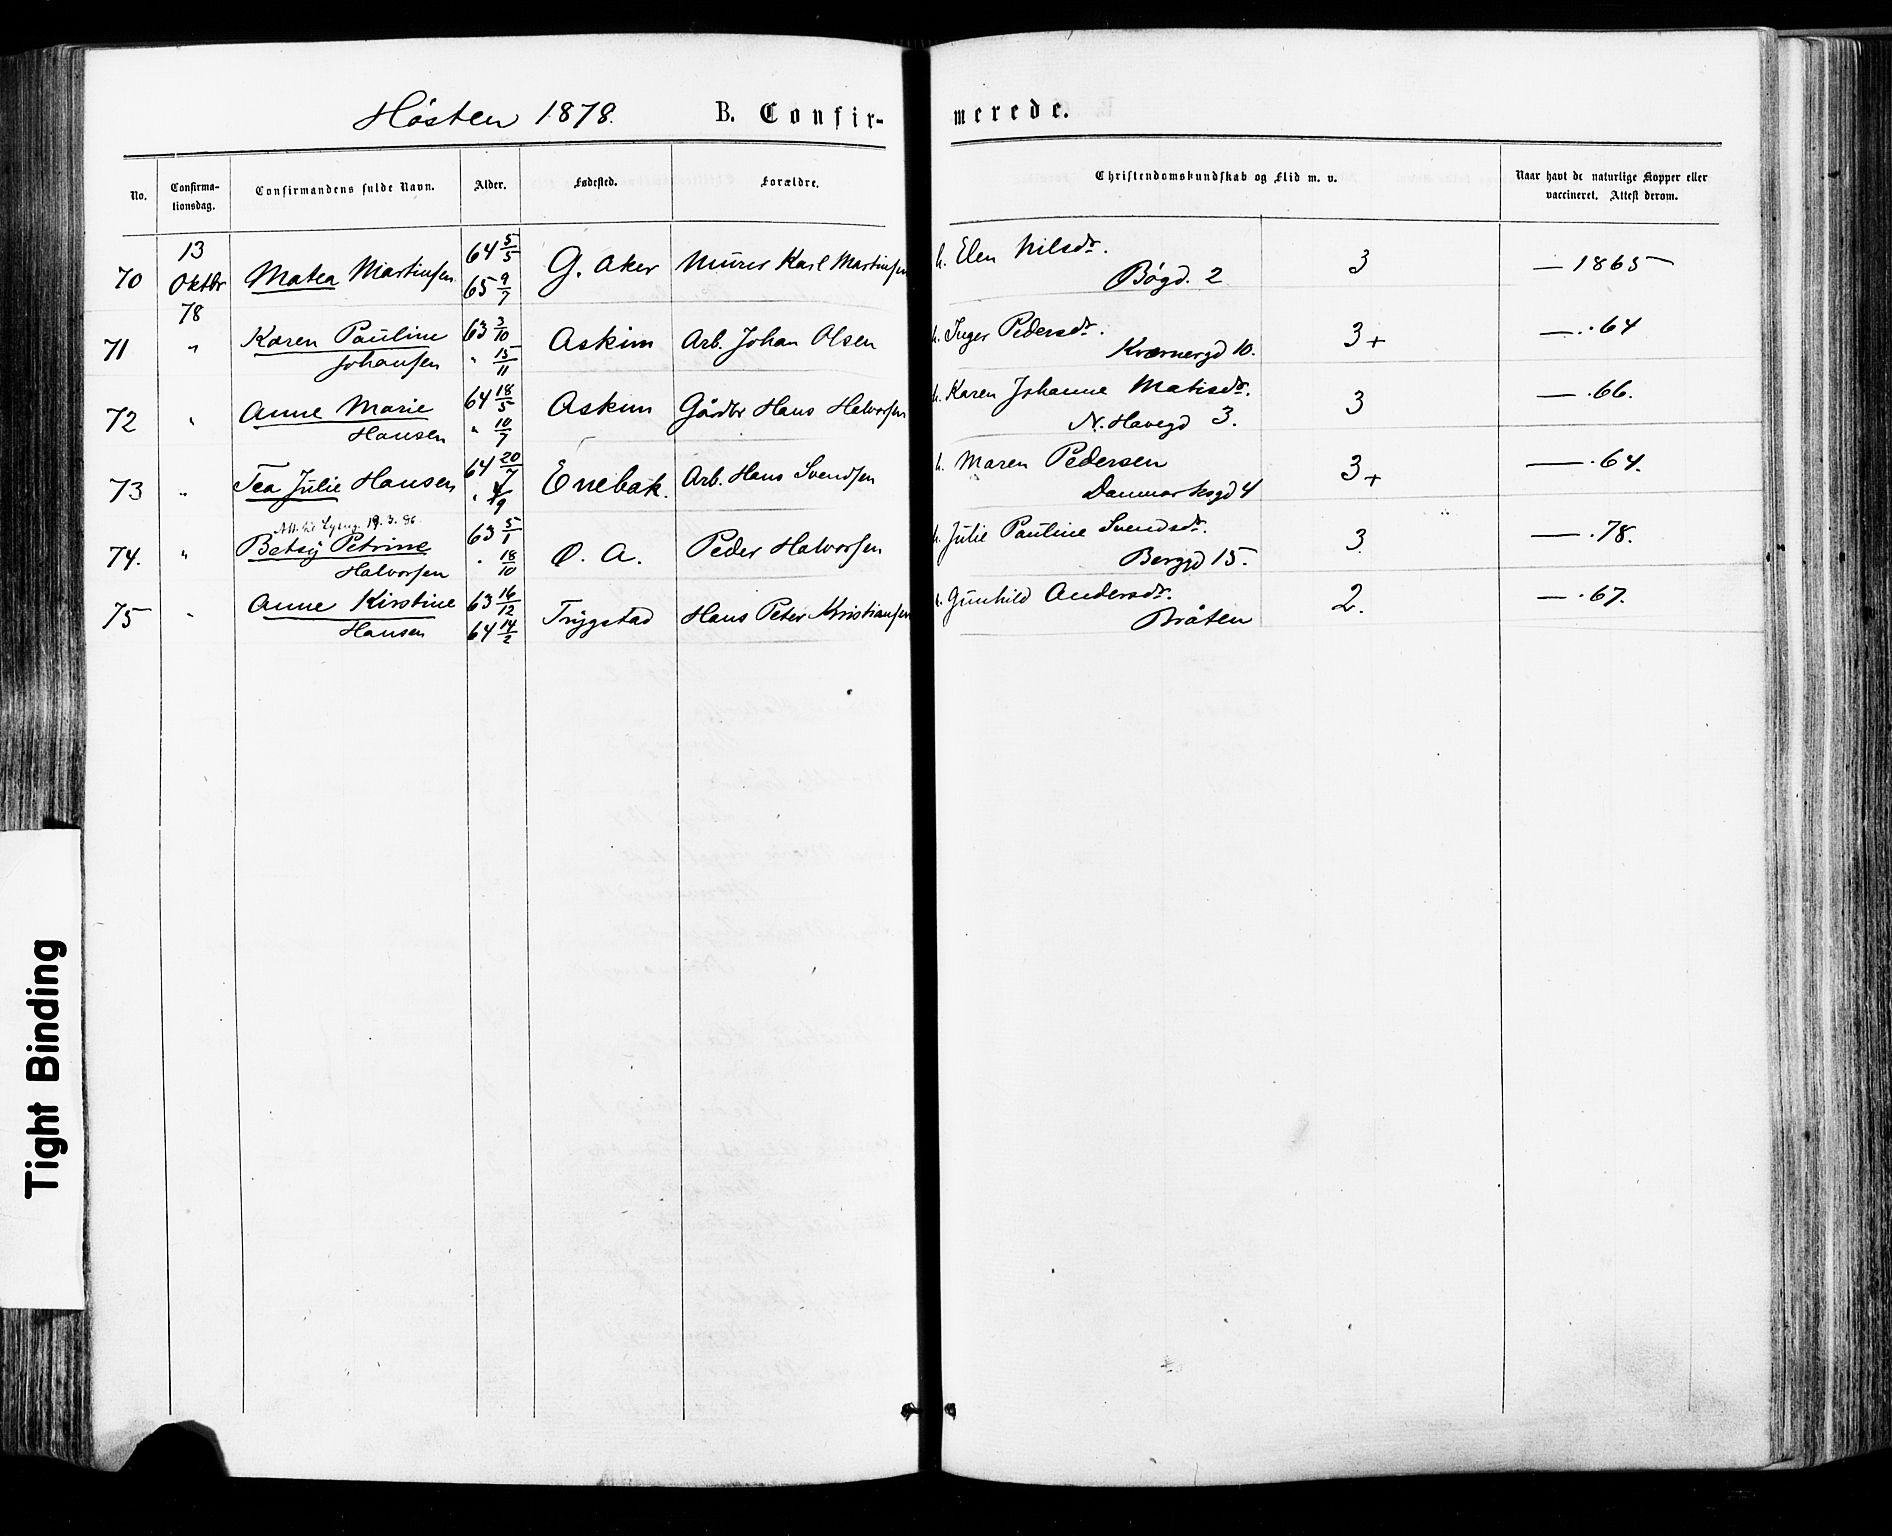 Høsten 1878. B. Confir- merede.
No. Confirma-tionsdag. Confirmandens fulde Navn. Alder. Fødested. Forældre. Christendomskundskab og Flid m. v. Naar havt de naturlige Kopper eller vaccineret. Attest derom.
70 13 Oktbr 78 Matea Martinsen 64 5/5 65 9/7 G. Aker Murer Karl Martinsen h. Elen Nilsdr. Bøgd. 2 3 — 1865
71 " Karen Pauline Johansen 63 3/10 " 15/11 Askim Arb. Johan Olsen h. Inger Pedersdr. Kværnergd 10. 3+ — . 64
72 " Anne Marie Hansen 64 18/5 " 10/7 Askim Gårdbr Hans Halvorsen h. Karen Johanne Matisdr. N. Havegd 3. 3 — . 66.
73 " Tea Julie Hansen 64 20/7 " /9 Enebak. Arb. Hans Svendsen h. Maren Pedersen Danmarksgd 4 3+ — . 64.
Att. til 19. 3. 86.
74. " Betsy Petrine Halvorsen 63 5/1 " 18/10 O. A. Peder Halvorsen h. Julie Pauline Svendsdr. Berggd 15. 3. — . 78.
75 " Anne Kirstine Hansen 63 16/12 64 14/2 Trygstad Hans Peter Kristiansen h. Gunhild Andersdr. Bråten 2. — . 67.
Tight Binding